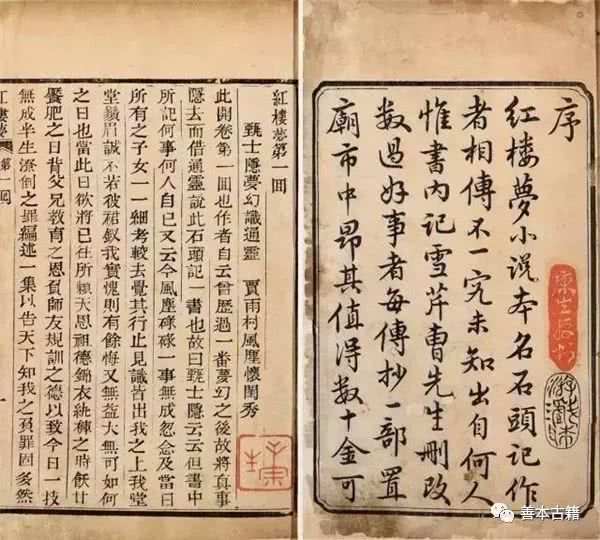 序
红楼夢小说本名石頭記作
者相傳不一究未知出自何人
惟書內記雪芹曹先生刪改
数過好事者每傳抄一部置
廟市中昂其值得数十金可
紅樓夢第一回
甄士隱夢幻識通靈 賈雨村風塵懷閨秀
此開卷第一回也作者自云曾歷過一番夢幻之後故將真事
隱去而借通靈說此石頭記一書也故曰甄士隱云云但書中
所記何事何人自己又云今風塵碌碌一事無成忽念及當日
所有之子女一一細考較去覺其行止見識皆出我之上我堂
堂鬚眉誠不若彼裙釵我實愧則有餘悔又無益大無可如何
之日也當此日欲將已往所賴天恩祖德錦衣紈袴之時飫甘
饜肥之日背父兄教育之恩負師友規訓之德以致今日一技
無成半生潦倒之罪編述一集以告天下知我之負罪固多然
紅樓夢 第一回 一
善本古籍